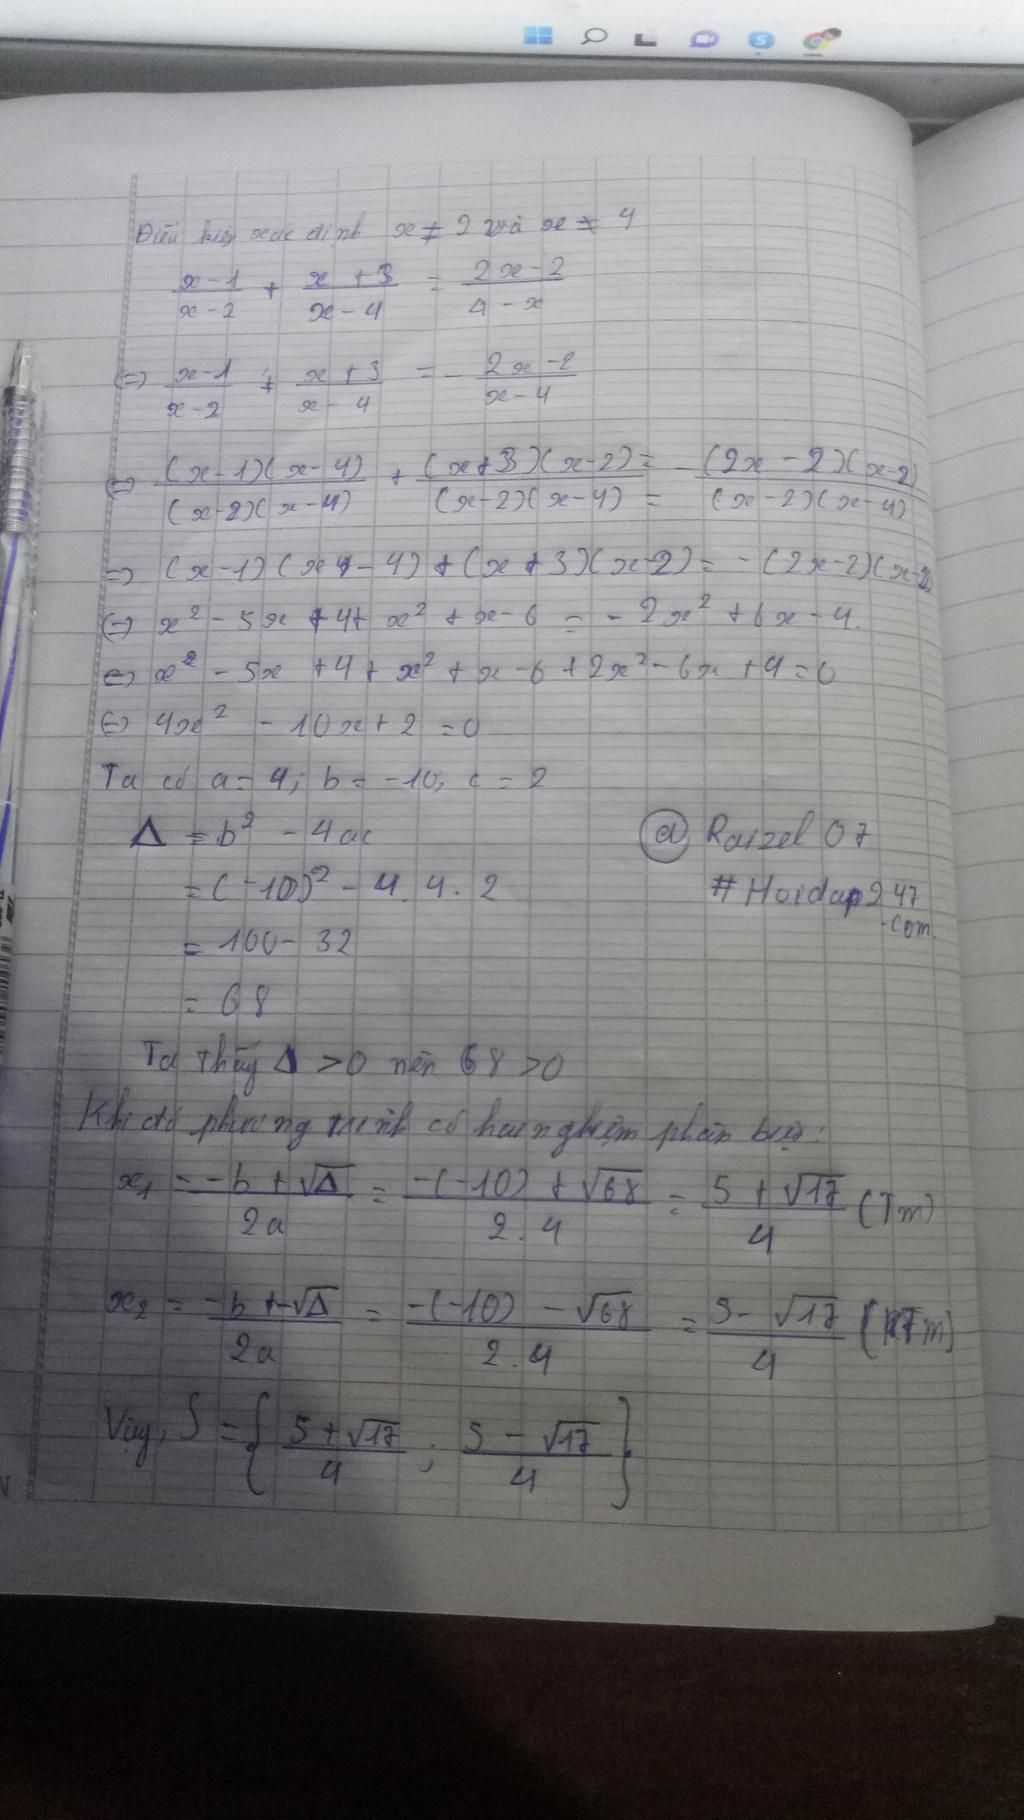 Điều kiện xác định x ≠ 2 và x ≠ 4
x-1/x-2 + x+3/x-4 = 2x-2/4-x
(=) x-1/x-2 + x+3/x-4 = - 2x-2/x-4
(=) (x-1)(x-4)/(x-2)(x-4) + (x+3)(x-2)/(x-2)(x-4) = - (2x-2)(x-2)/(x-2)(x-4)
=) (x-1)(x-4) + (x+3)(x-2) = -(2x-2)(x-2)
(=) x² - 5x + 4 + x² + x - 6 = - 2x² + 6x - 4.
(=) x² - 5x + 4 + x² + x - 6 + 2x² - 6x + 4 = 0
(=) 4x² - 10x + 2 = 0
Ta có a = 4; b = -10; c = 2
Δ = b² - 4ac
@ Raizel 07
= (-10)² - 4.4.2
# Hoidap247
.com.
= 100 - 32
= 68
Ta thấy Δ > 0 nên 68 > 0
Khi đó phương trình có hai nghiệm phân biệt:
x₁ = -b + √Δ/2a = -(-10) + √68/2.4 = 5 + √17/4 (Tm)
x₂ = -b - √Δ/2a = -(-10) - √68/2.4 = 5 - √17/4 (Tm)
Vậy, S = { 5 + √17/4 ; 5 - √17/4 }